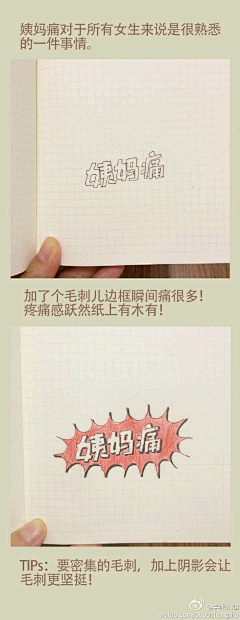 姨妈痛对于所有女生来说是很熟悉
的一件事情。
姨妈痛
加了个毛刺儿边框瞬间痛很多！
疼痛感跃然纸上有木有！
姨妈痛
TIPs：要密集的毛刺，加上阴影会让
毛刺更坚挺！